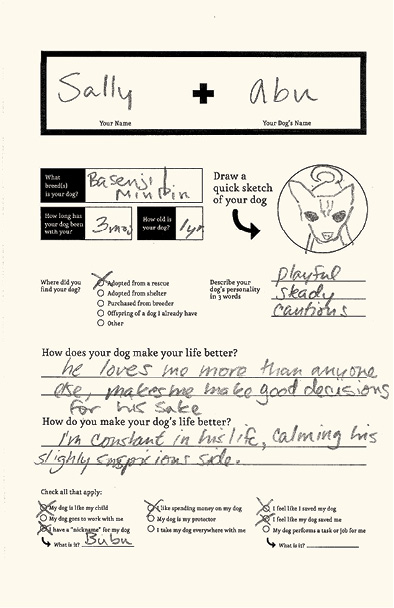 Sally + Abu
Your Name Your Dog's Name
What breed(s) is your dog? Basenji Min Pin
How long has your dog been with you? 3 mos How old is your dog? 1 yr
Draw a quick sketch of your dog
Where did you find your dog?
Adopted from a rescue
Adopted from shelter
Purchased from breeder
Offspring of a dog I already have
Other
Describe your dog's personality in 3 words
playful
steady
cautious
How does your dog make your life better?
he loves me more than anyone
else, makes me make good decisions
for his sake
How do you make your dog's life better?
I'm constant in his life, calming his
slighly suspicious side.
Check all that apply:
My dog is like my child
My dog goes to work with me
I have a "nickname" for my dog
What is it? Bubu
I like spending money on my dog
My dog is my protector
I take my dog everywhere with me
I feel like I saved my dog
I feel like my dog saved me
My dog performs a task or job for me
What is it?